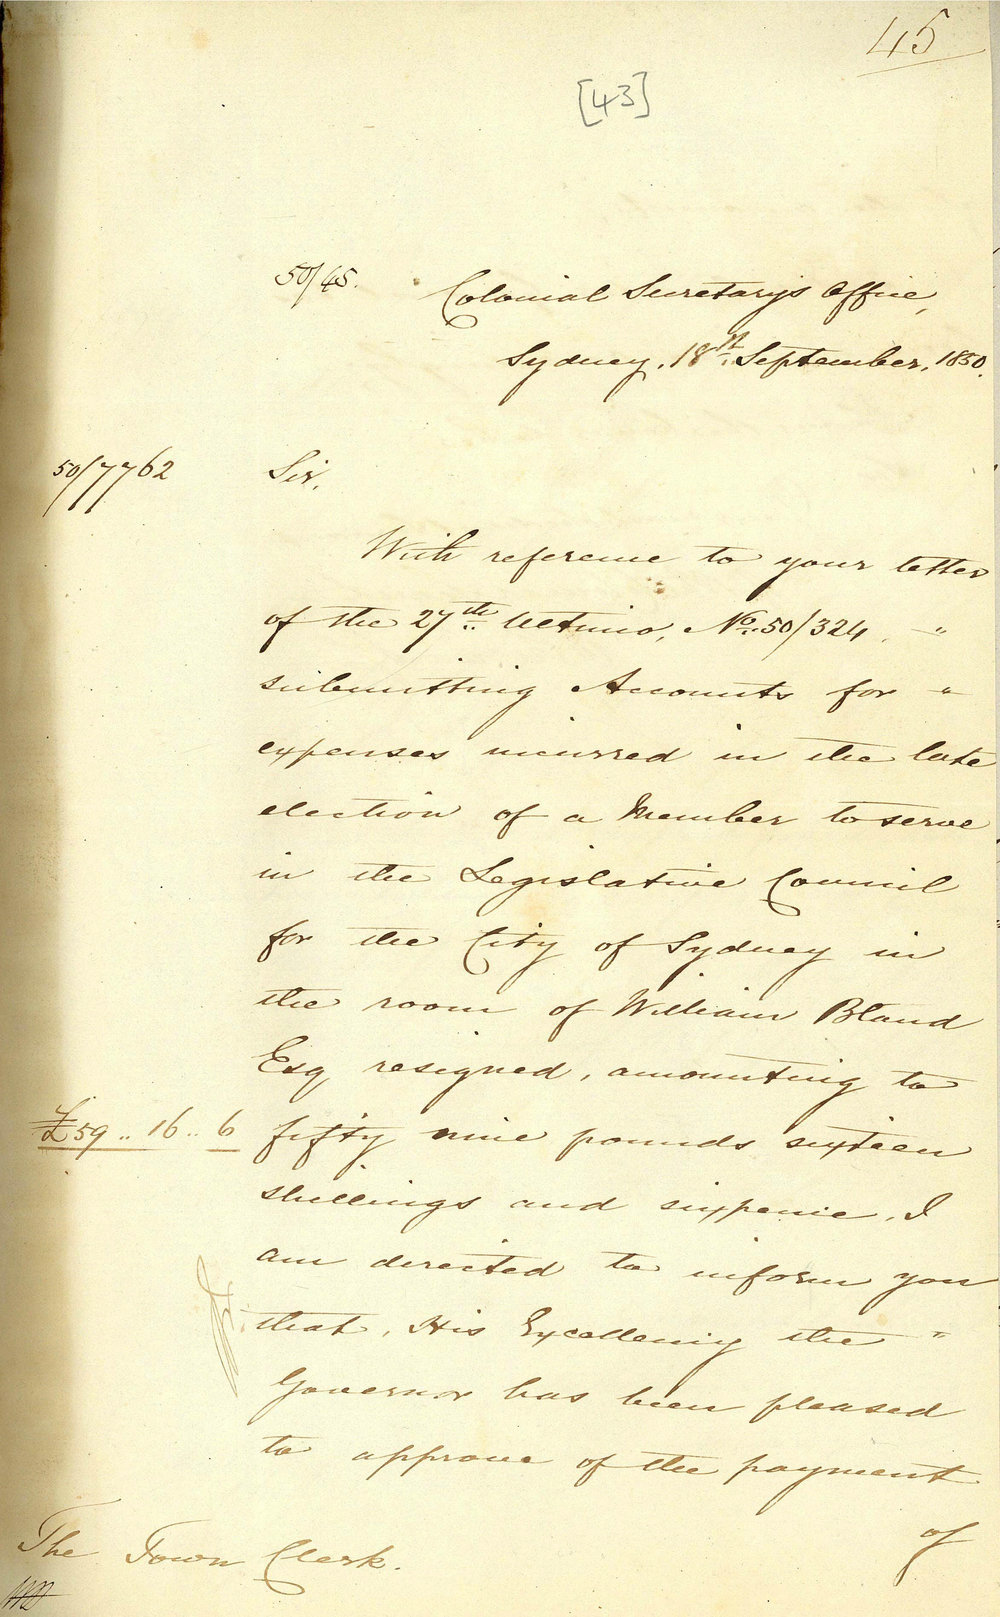 45
[43]
50/45.
Colonial Secretary's Office,
Sydney, 18th September, 1850.
50/7762
Sir,
With reference to your letter
of the 27th Ultimo, No. 50/324, "
submitting Accounts for "
expenses incurred in the late
election of a Member to serve
in the Legislative Council
for the City of Sydney in
the room of William Bland
Esq resigned, amounting to
£59 .. 16 .. 6
fifty nine pounds sixteen
shillings and sixpence, I
am directed to inform you
that, His Excellency the "
Governor has been pleased
to approve of the payment
of
The Town Clerk.